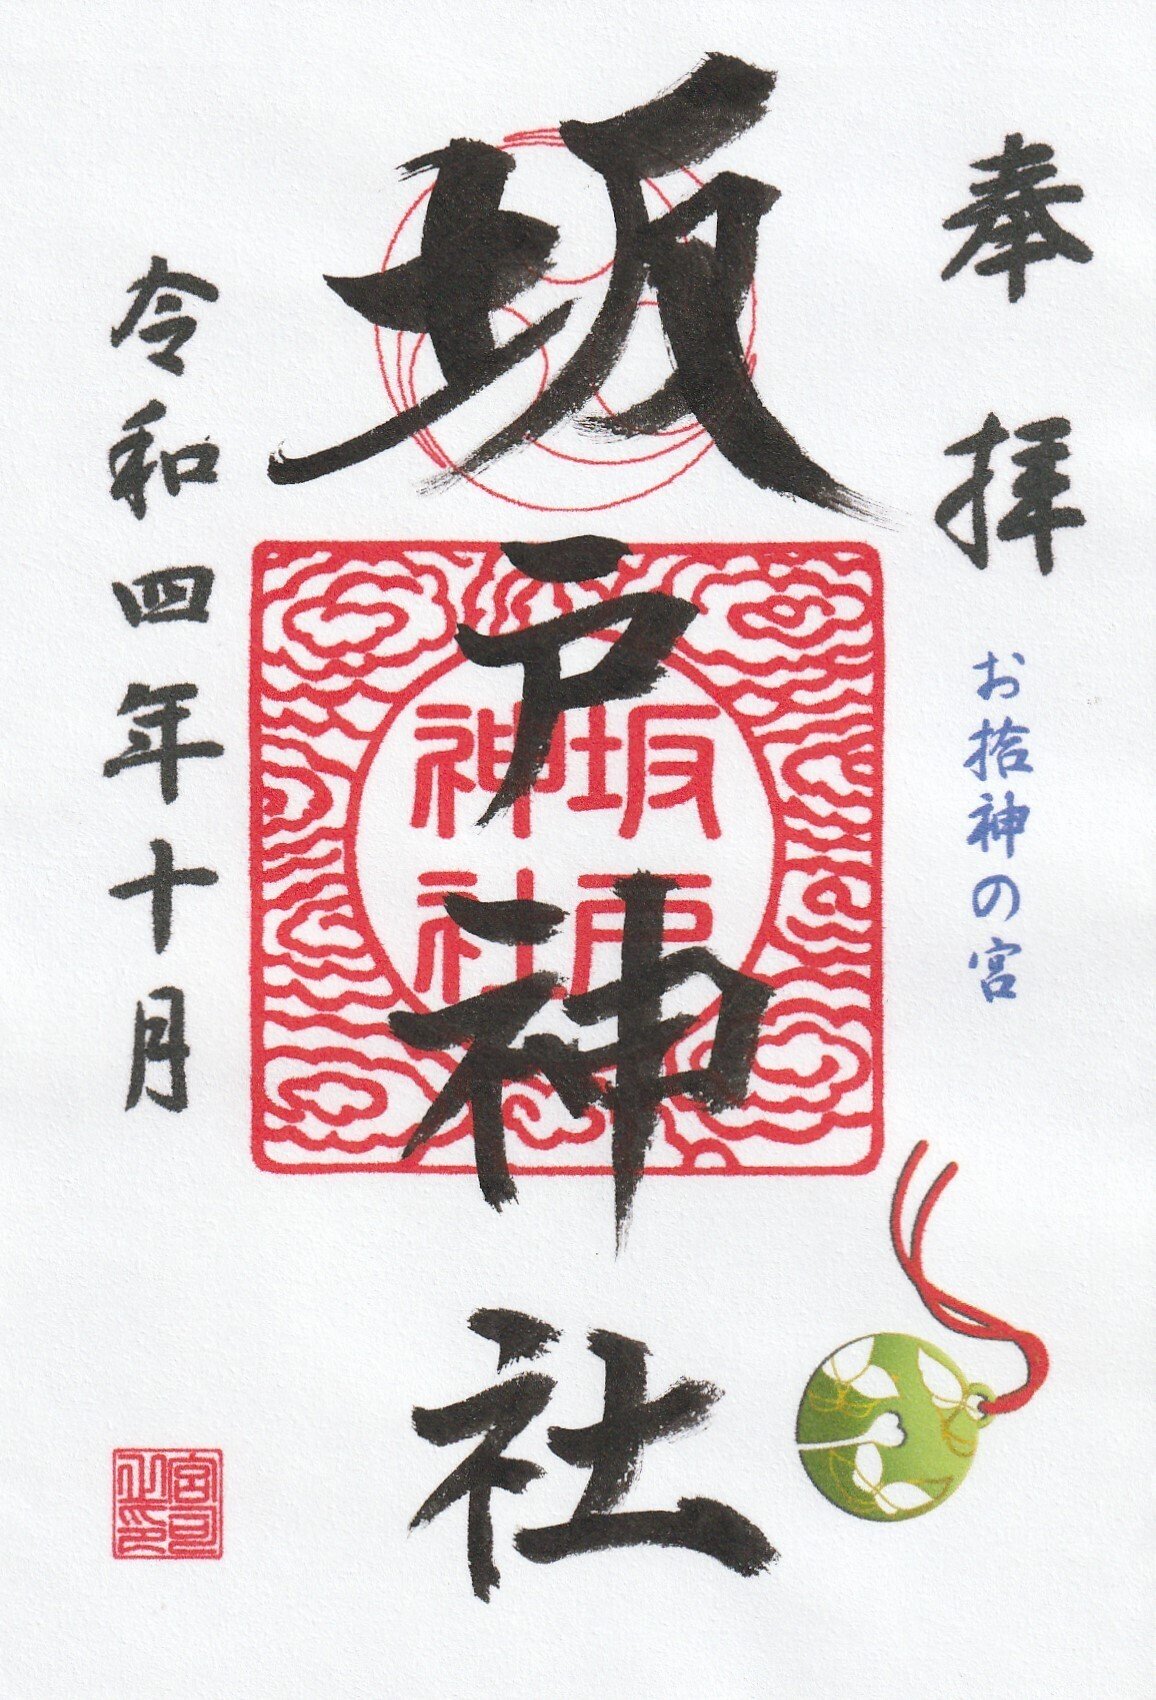 奉拝
お拾神の宮
坂戸神社
坂戸
神社
令和四年十月
宮司
之印